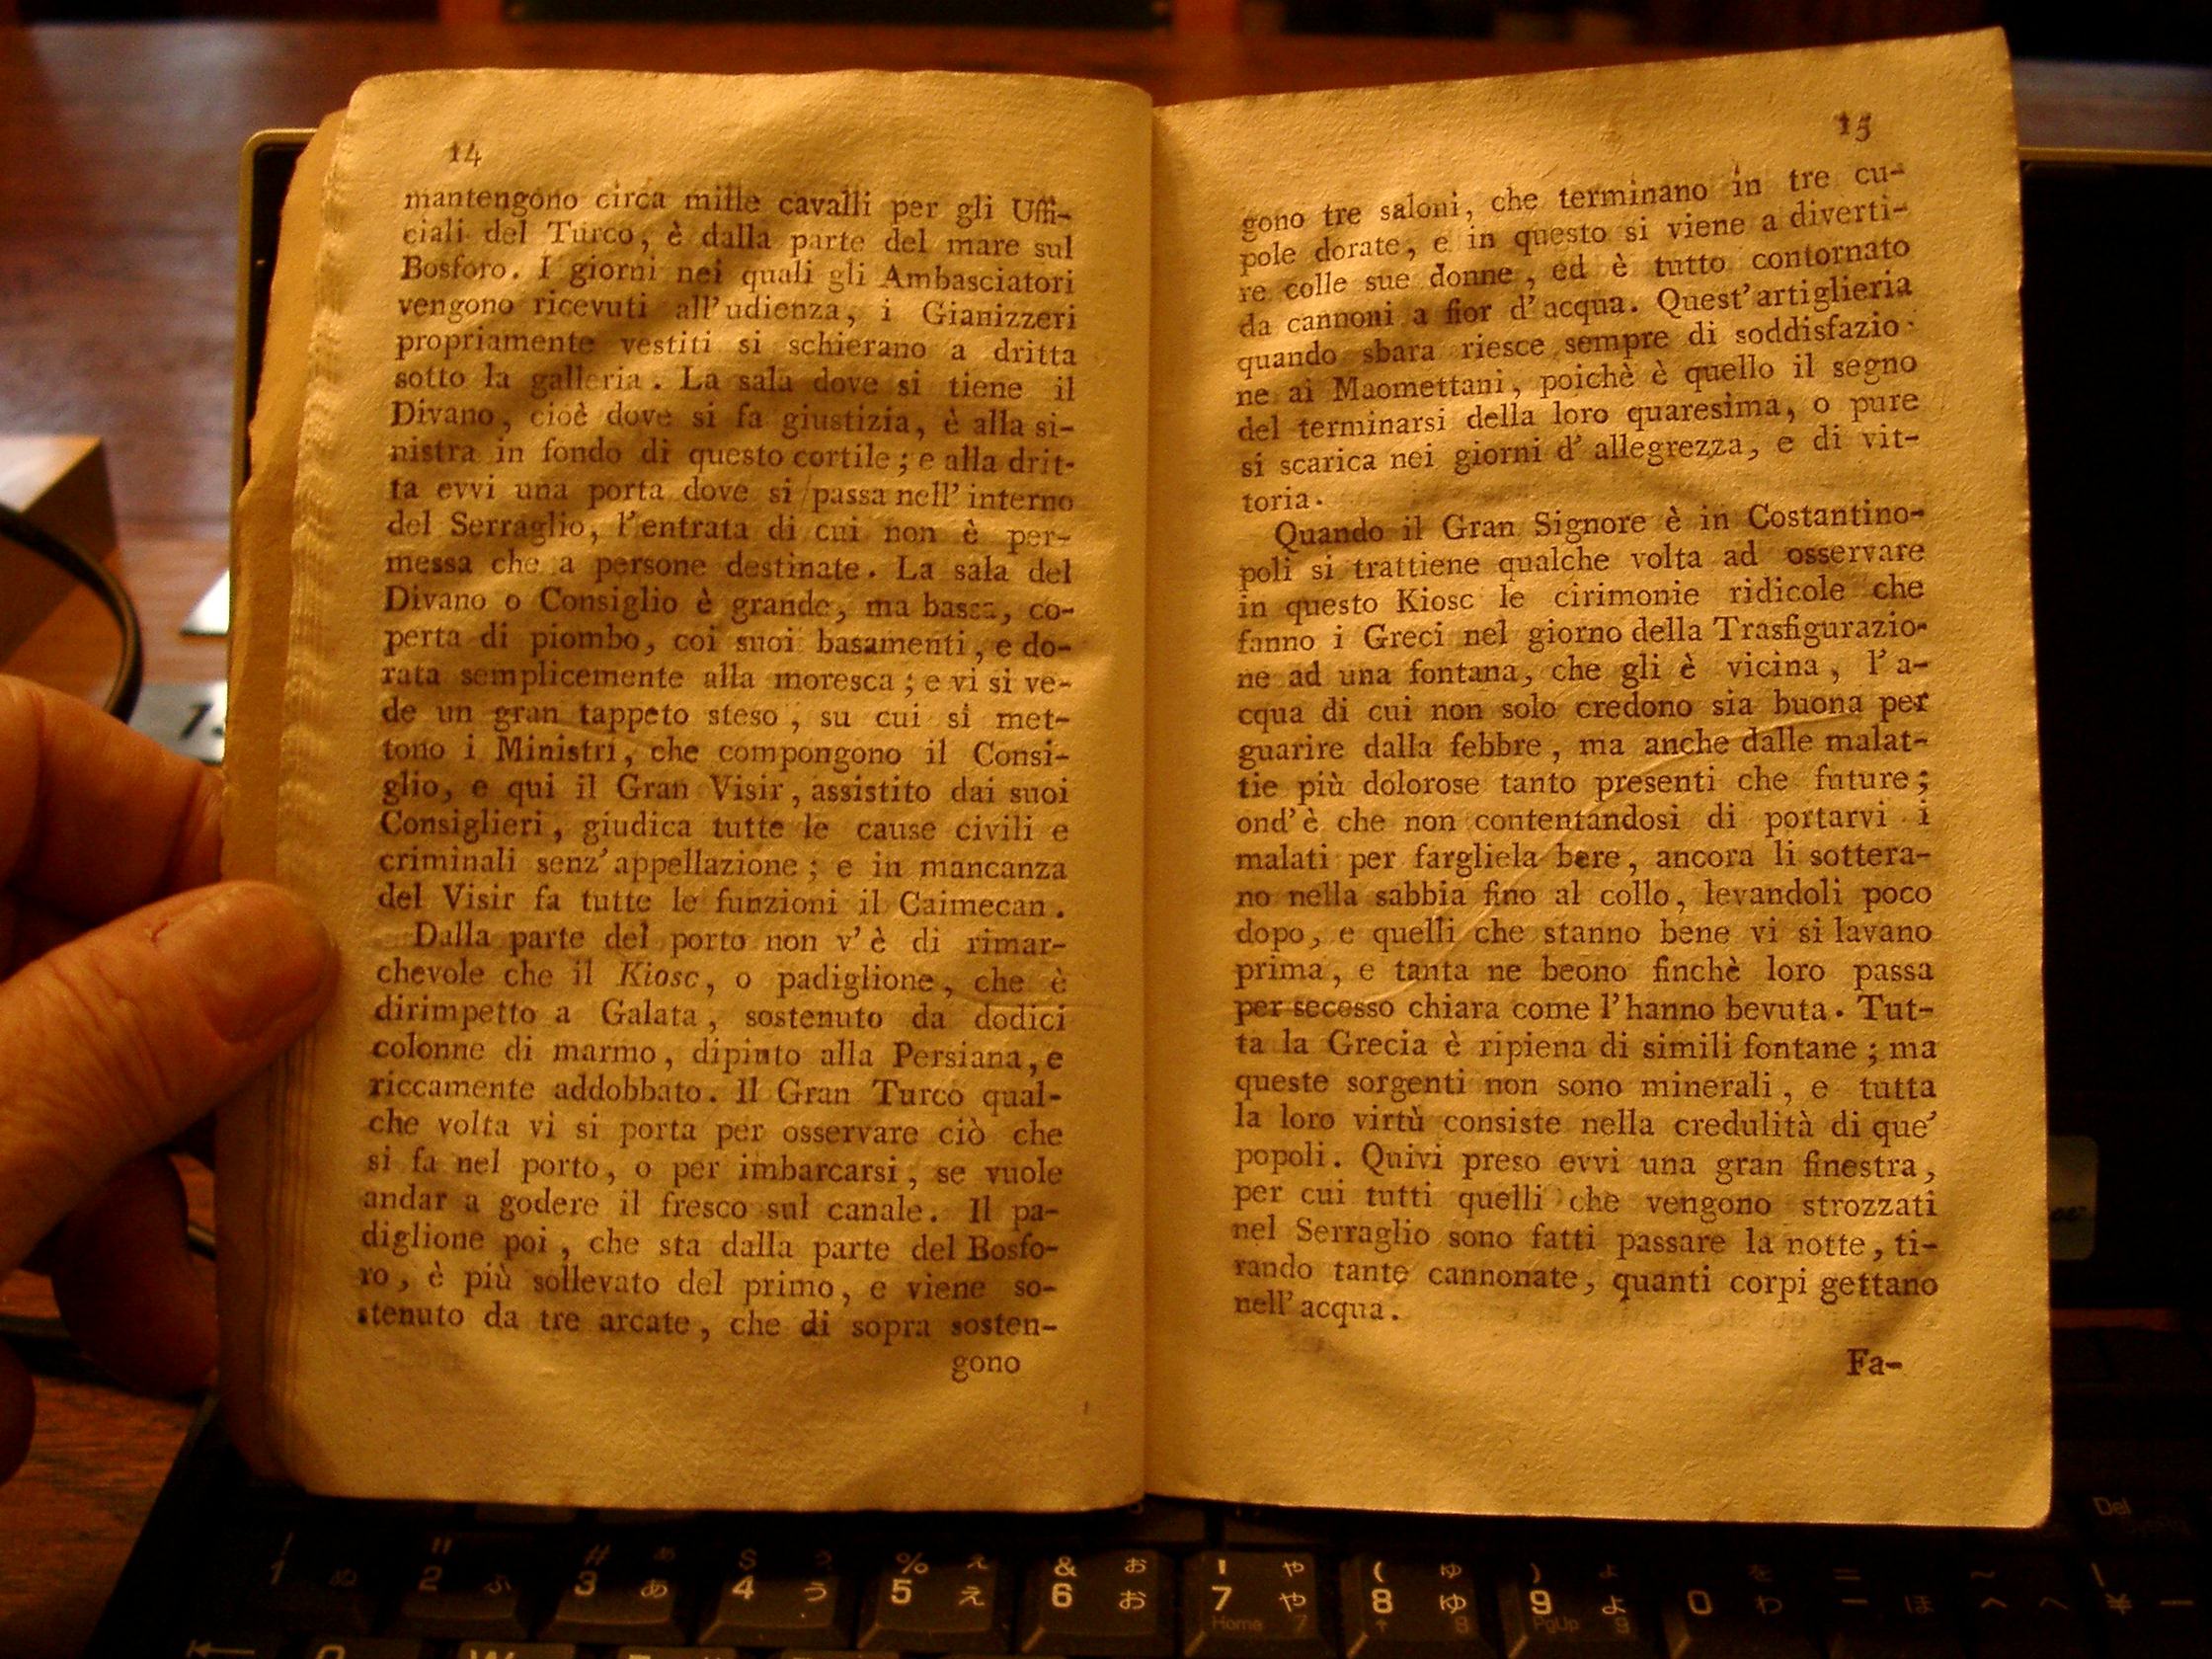 14
mantengono circa mille cavalli per gli Uffi-
ciali del Turco, è dalla parte del mare sul
Bosforo. I giorni nei quali gli Ambasciatori
vengono ricevuti all'udienza, i Gianizzeri
propriamente vestiti si schierano a dritta
sotto la galleria. La sala dove si tiene il
Divano, cioè dove si fa giustizia, è alla si-
nistra in fondo di questo cortile; e alla drit-
ta evvi una porta dove si passa nell'interno
del Serraglio, l'entrata di cui non è per-
messa che a persone destinate. La sala del
Divano o Consiglio è grande, ma bassa, co-
perta di piombo, coi suoi basamenti, e do-
rata semplicemente alla moresca; e vi si ve-
de un gran tappeto steso, su cui si met-
tono i Ministri, che compongono il Consi-
glio, e qui il Gran Visir, assistito dai suoi
Consiglieri, giudica tutte le cause civili e
criminali senz'appellazione; e in mancanza
del Visir fa tutte le funzioni il Caimecan.
Dalla parte del porto non v'è di rimar-
chevole che il Kiosc, o padiglione, che è
dirimpetto a Galata, sostenuto da dodici
colonne di marmo, dipinto alla Persiana, e
riccamente addobbato. Il Gran Turco qual-
che volta vi si porta per osservare ciò che
si fa nel porto, o per imbarcarsi, se vuole
andar a godere il fresco sul canale. Il pa-
diglione poi, che sta dalla parte del Bosfo-
ro, è più sollevato del primo, e viene so-
stenuto da tre arcate, che di sopra sosten-
gono
15
gono tre saloni, che terminano in tre cu-
pole dorate, e in questo si viene a diverti-
re colle sue donne, ed è tutto contornato
da cannoni a fior d'acqua. Quest'artiglieria
quando sbara riesce sempre di soddisfazio-
ne ai Maomettani, poichè è quello il segno
del terminarsi della loro quaresima, o pure
si scarica nei giorni d'allegrezza, e di vit-
toria.
Quando il Gran Signore è in Costantino-
poli si trattiene qualche volta ad osservare
in questo Kiosc le cirimonie ridicole che
fanno i Greci nel giorno della Trasfigurazio-
ne ad una fontana, che gli è vicina, l'a-
cqua di cui non solo credono sia buona per
guarire dalla febbre, ma anche dalle malat-
tie più dolorose tanto presenti che future;
ond'è che non contentandosi di portarvi i
malati per fargliela bere, ancora li sottera-
no nella sabbia fino al collo, levandoli poco
dopo, e quelli che stanno bene vi si lavano
prima, e tanta ne beono finchè loro passa
per secesso chiara come l'hanno bevuta. Tut-
ta la Grecia è ripiena di simili fontane; ma
queste sorgenti non sono minerali, e tutta
la loro virtù consiste nella credulità di que'
popoli. Quivi preso evvi una gran finestra,
per cui tutti quelli che vengono strozzati
nel Serraglio sono fatti passare la notte, ti-
rando tante cannonate, quanti corpi gettano
nell'acqua.
Fa-
Del
! " # ぁ $ ぅ % ぇ & ぉ ' ゃ ( ゅ ) ょ を = ~ |
1 ぬ 2 ふ 3 あ 4 う 5 え 6 お 7 や 8 ゆ 9 よ 0 わ - ほ ^ へ ¥ ー
Home 7 ↑ 8 PgUp 9